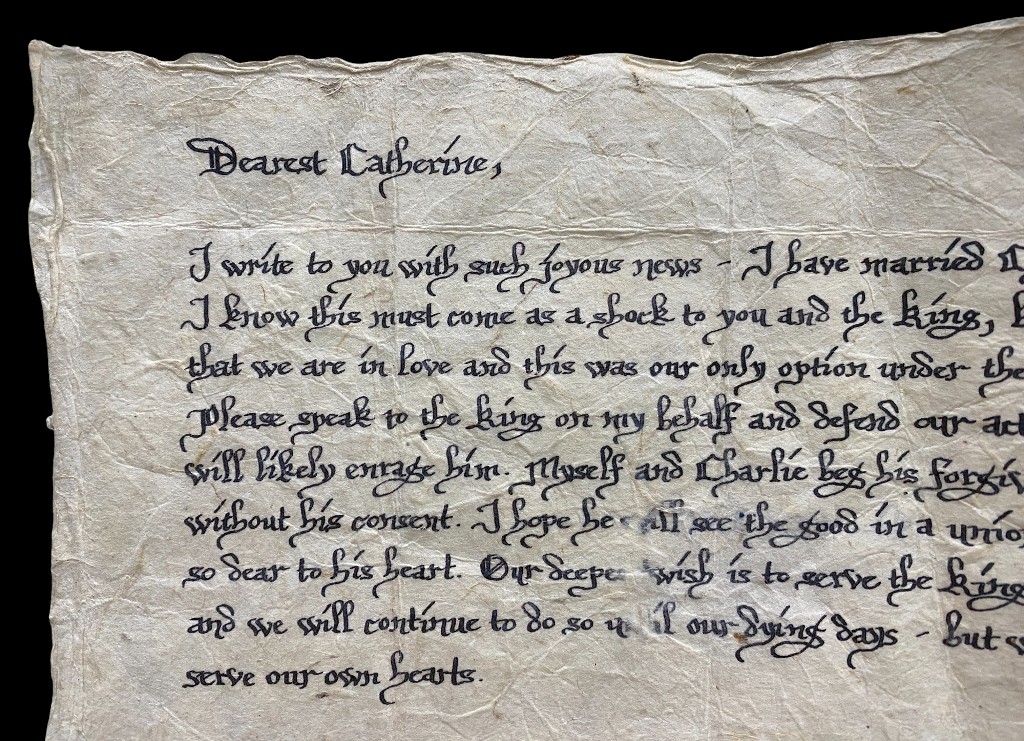 Dearest Catherine,
I write to you with such joyous news - I have married
I know this must come as a shock to you and the king,
that we are in love and this was our only option under the
Please speak to the king on my behalf and defend our
will likely enrage him. Myself and Charlie beg his
without his consent. I hope he see the good in a
so dear to his heart. Our wish is to serve the king
and we will continue to do so our dying days - but
serve our own hearts.